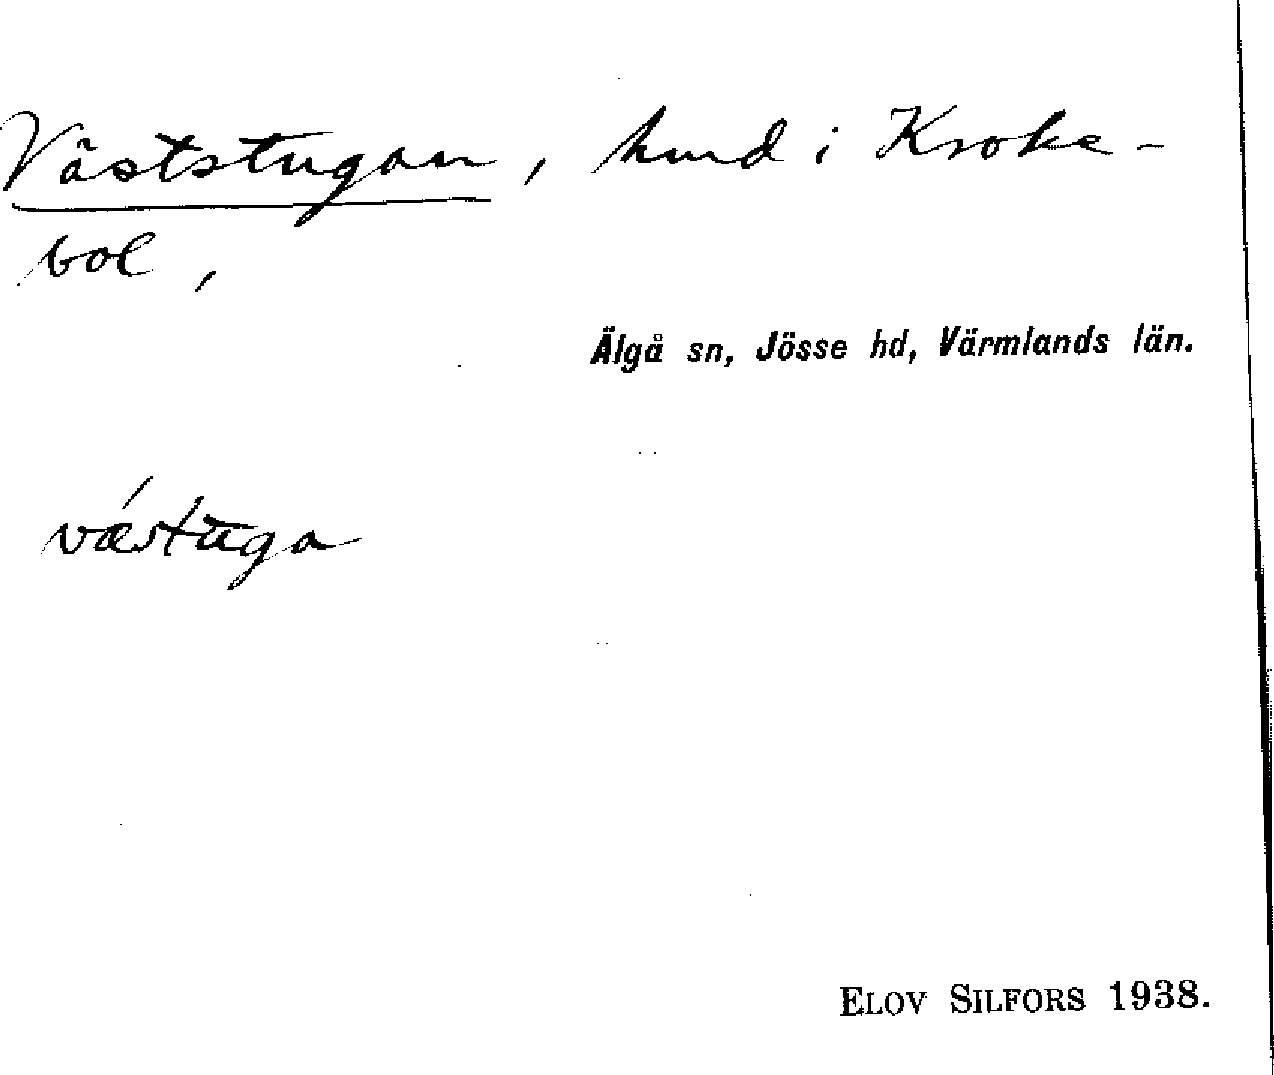 Väststugan, hmd i Kroke-
bol,
Älgå sn, Jösse hd, Värmlands län.
vǽstuga
ELOV SILFORS 1938.